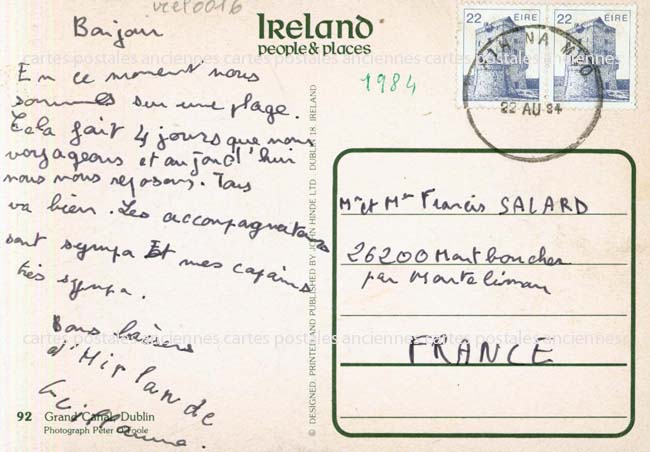 vcet0016
Bonjour
En ce moment nous
sommes sur une plage.
Cela fait 4 jours que nous
voyageons et aujourd'hui
nous nous reposons. Tous
va bien. Les accompagnateurs
sont sympa Et mes copains
très sympa.
Bons baisers
d'Hirlande
Guillaume.
92 Grand Canal, Dublin
Photograph Peter O'Toole
IRELAND
people & places
1984
© DESIGNED, PRINTED AND PUBLISHED BY JOHN HINDE LTD DUBLIN 18, IRELAND
22 ÉIRE
22 ÉIRE
22 AU 84
Mr et Mme Francis SALARD
26200 Montboucher
par Montelimar
FRANCE
cartes postales anciennes cartes postales anciennes cartes postales anciennes
cartes postales anciennes cartes postales anciennes cartes postales anciennes